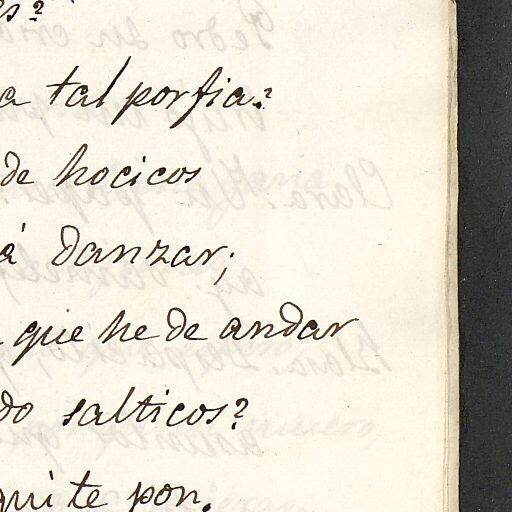 es?
a tal porfia?
de hocicos
á danzar;
que he de andar
do salticos?
qui te pon.